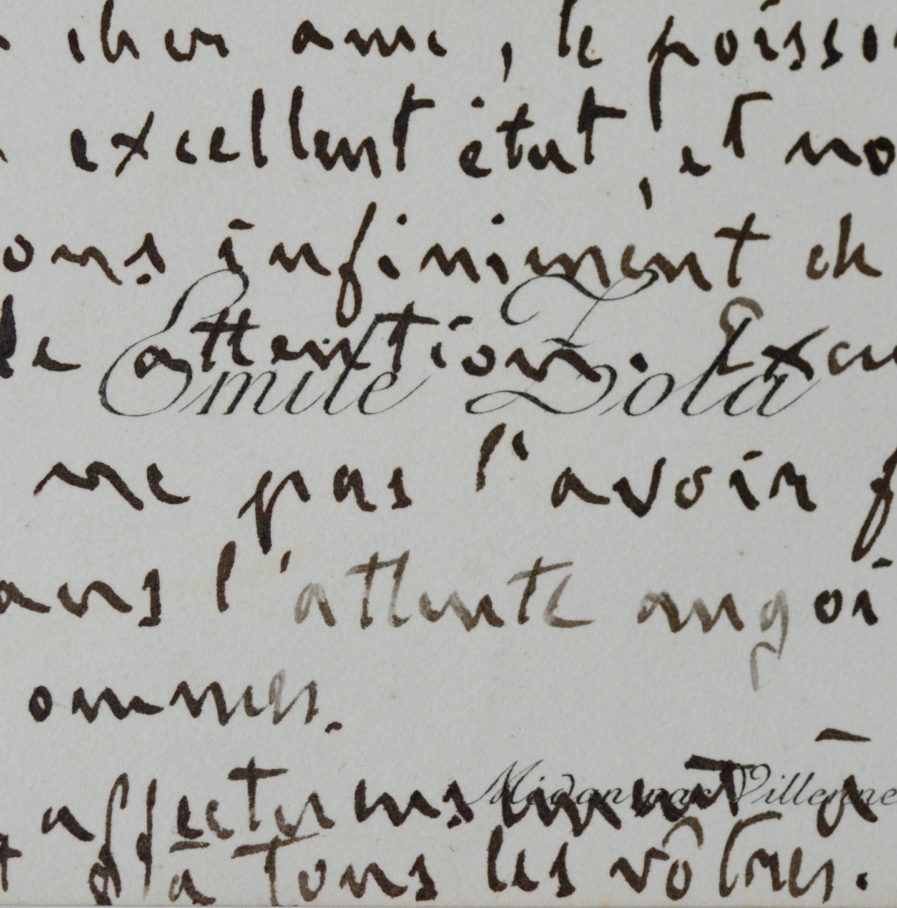 cher ami, le poisso
excellent état, et no
ons infiniment de
le attention. Excu
Emile Zola
ne pas l'avoir f
ans l'attente angoi
ommes.
affectueusement à
Médan par Villennes
à tous les vôtres.